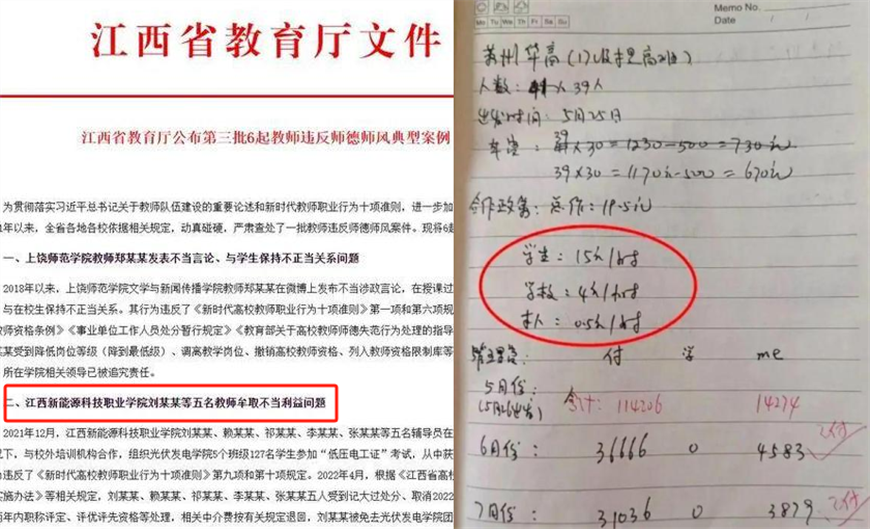 江西省教育厅文件
江西省教育厅公布第三批6起教师违反师德师风典型案例
为贯彻落实习近平总书记关于教师队伍建设的重要论述和新时代教师职业行为十项准则，进一步加
1年以来，全省各地各校依据相关规定，动真碰硬，严肃查处了一批教师违反师德师风案件。现将6起
一、上饶师范学院教师郑某某发表不当言论、与学生保持不正当关系问题
2018年以来，上饶师范学院文学与新闻传播学院教师郑某某在微博上发布不当涉政言论，在授课过
与在校生保持不正当关系。其行为违反了《新时代高校教师职业行为十项准则》第一项和第六项规
教师资格条例》《事业单位工作人员处分暂行规定》《教育部关于高校教师师德失范行为处理的指导
某某受到降低岗位等级（降到最低级）、调离教学岗位、撤销高校教师资格、列入教师资格限制库等
所在学院相关领导已被追究责任。
二、江西新能源科技职业学院刘某某等五名教师牟取不当利益问题
2021年12月，江西新能源科技职业学院刘某某、赖某某、祁某某、李某某、张某某等五名辅导员在
下，与校外培训机构合作，组织光伏发电学院5个班级127名学生参加“低压电工证”考试，从中获
违反了《新时代高校教师职业行为十项准则》第九项和第十项规定。2022年4月，根据《江西省高校
实施办法》等相关规定，刘某某、赖某某、祁某某、李某某、张某某五人受到记大过处分、取消2022
年内职称评定、评优评先资格等处理，相关中介费按有关规定退回，刘某某被免去光伏发电学院团
Memo No.
Mo Tu We Th Fr Sa Su
Date / /
苏州华高
人数：
人 39人
出发时间：5月25日
39
车费：
×30=1230-500=730元
39×30=1170元-500=670元
合作政策：总价：19.5元
学生：15元/时
学校：4元/时
本人：0.5元/时
管理费
付 学 me
5月份：
合计：114206 14274
6月份： 36666 0 4583 已付
7月份： 31036 0 3879 已付